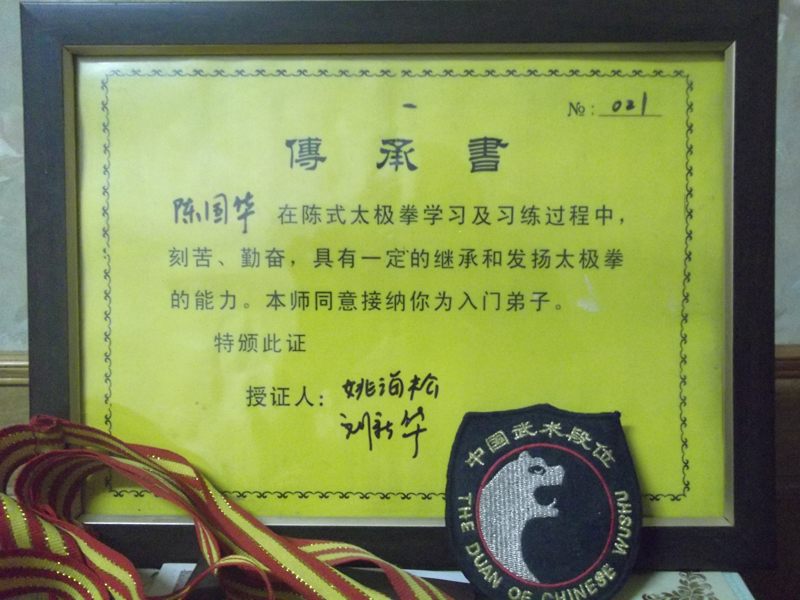 №: 021
傳承書
陈国华 在陈式太极拳学习及习练过程中，
刻苦、勤奋，具有一定的继承和发扬太极拳
的能力。本师同意接纳你为入门弟子。
特颁此证
授证人：姚海松
刘新华
中國武术段位
THE DUAN OF CHINESE WUSHU